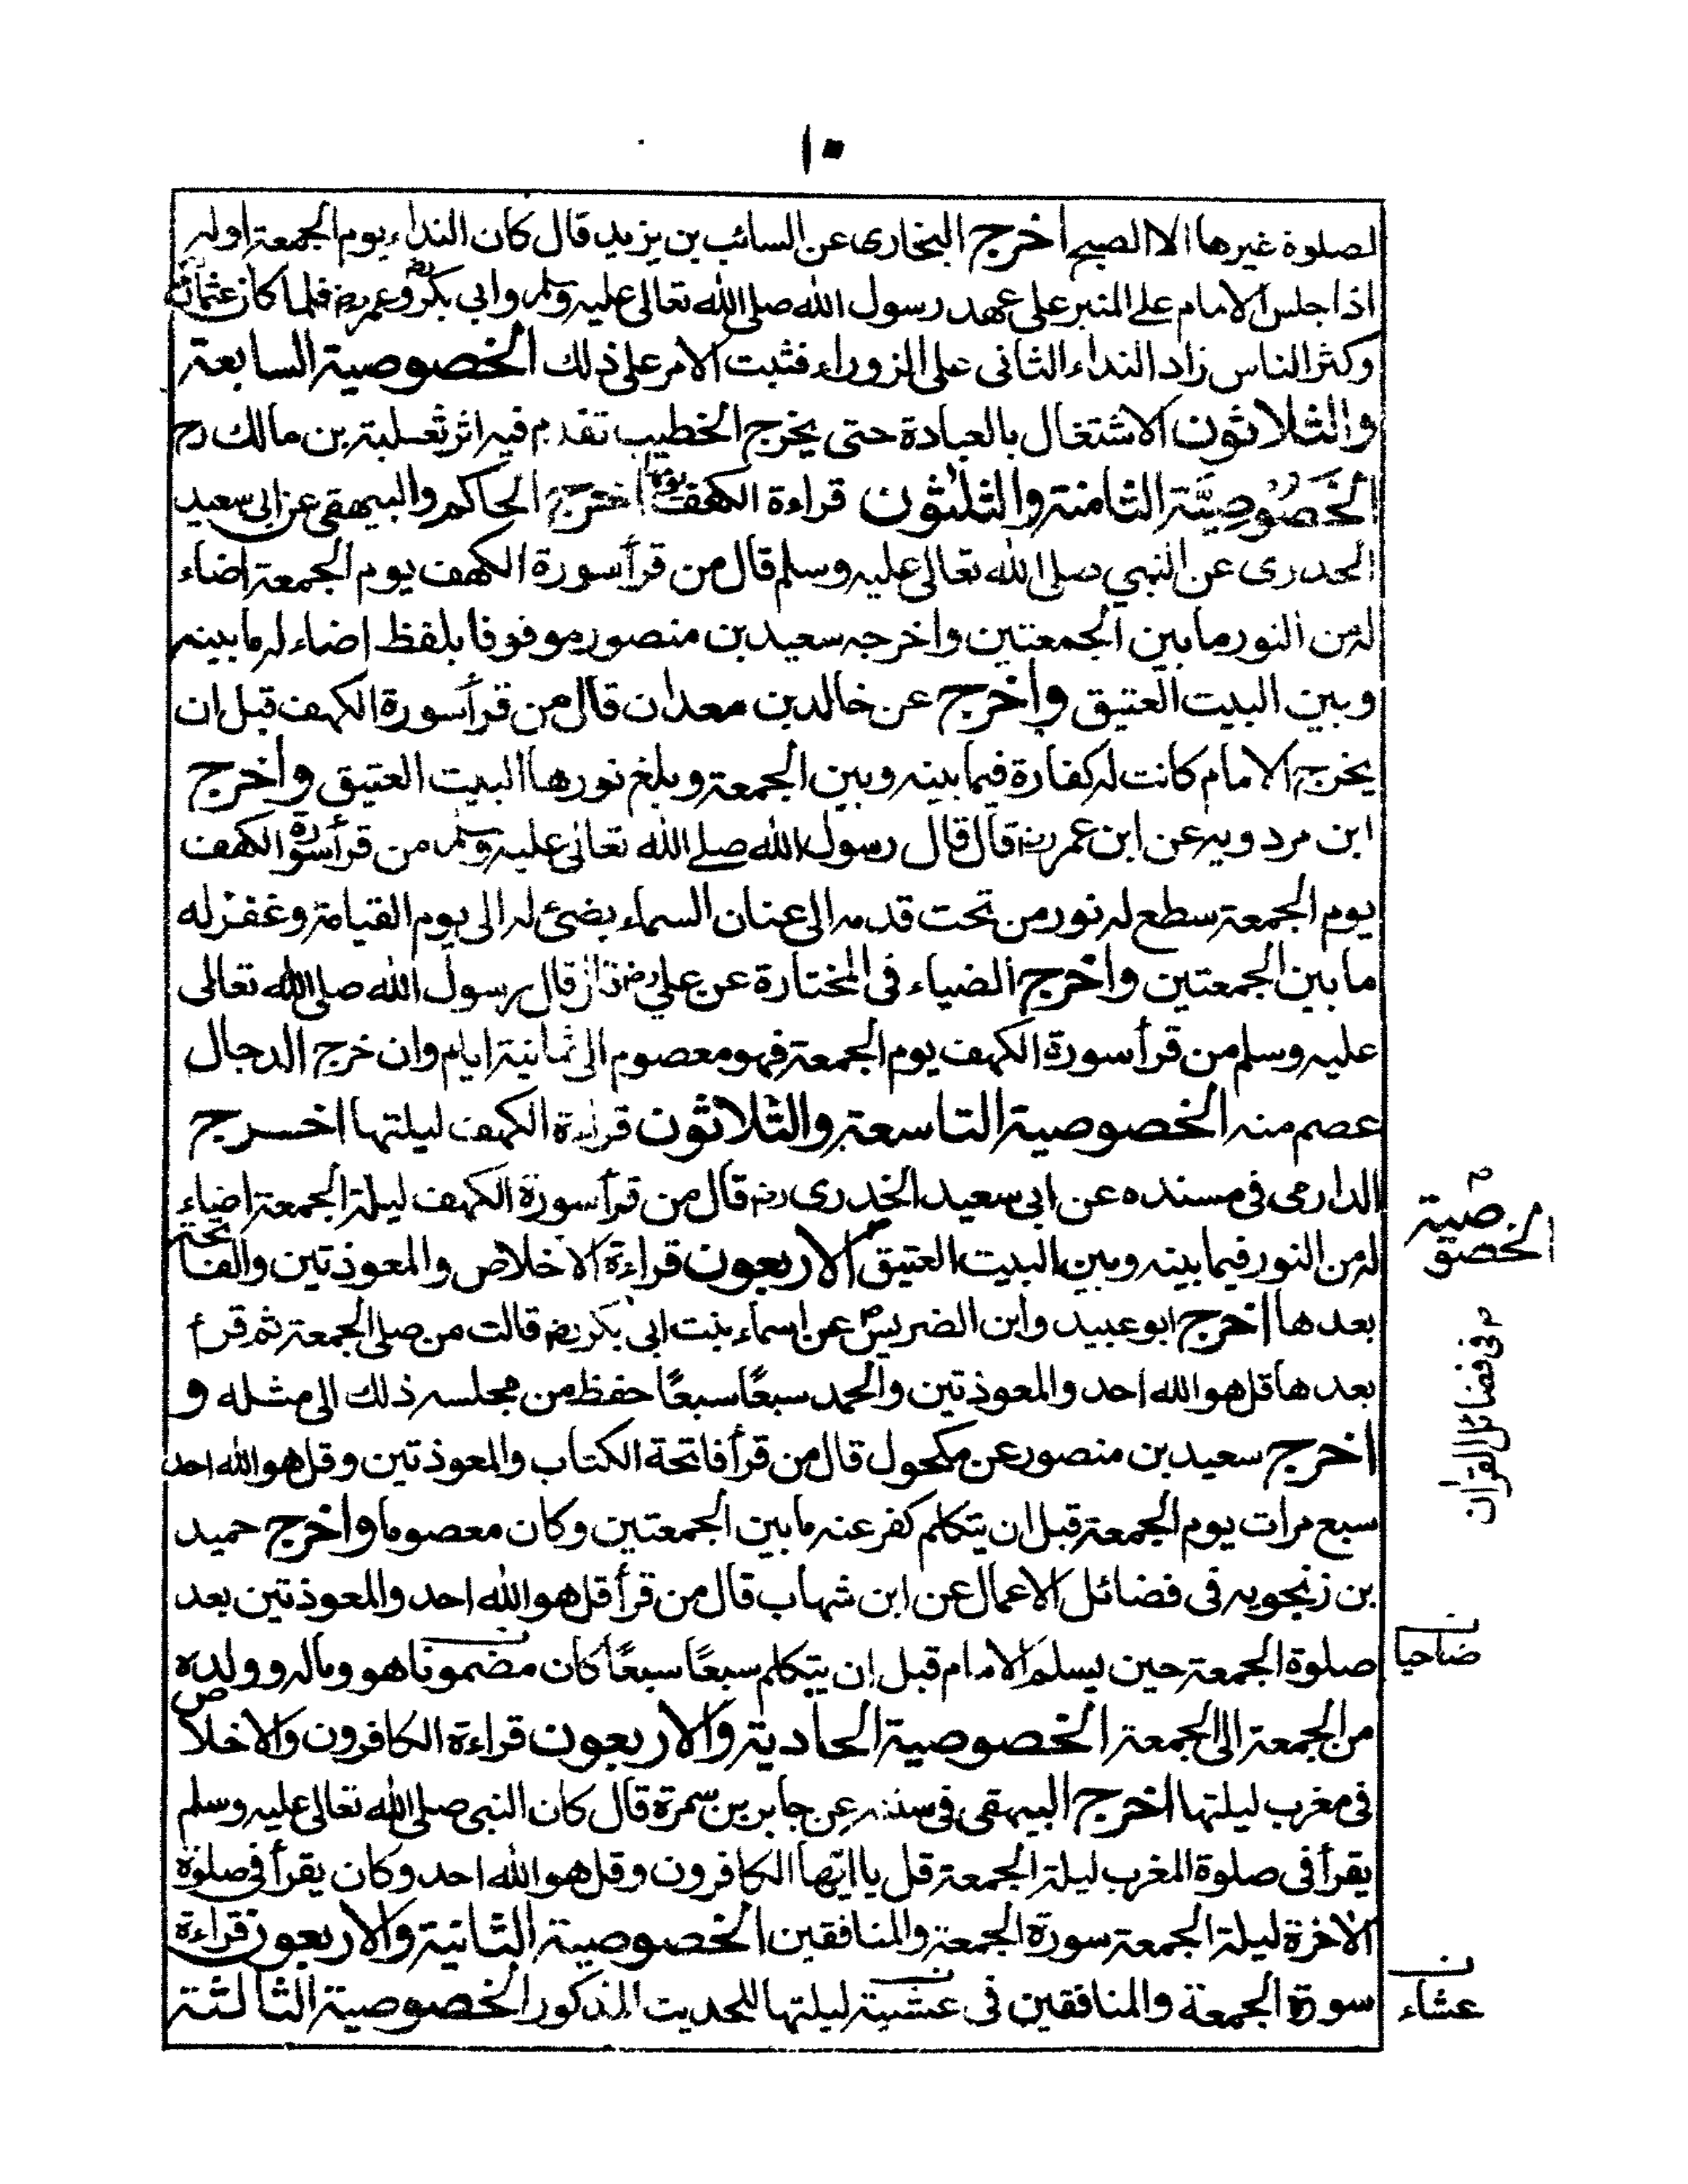 ١٠
لصلوة غيرها الا الصبح اخرج البخارى عن السائب بن يزيد قال كان النداء يوم الجمعة اوله
اذا جلس الامام على المنبر على عهد رسول الله صلى الله تعالى عليه وسلم وابي بكر رض وعمر رض فلما كان عثمان
وكثر الناس زاد النداء الثانى على الزوراء فثبت الامر على ذلك الخصوصية السابعة
والثلاثون الاشتغال بالعبادة حتى يخرج الخطيب تقدم فيه اثر ثعلبة بن مالك رح
الخَصُوصِيَّة الثامنة والثلثون قراءة الكهف يومها اخرج الحاكم والبيهقى عن ابى سعيد
الخدرى عن النبي صلى الله تعالى عليه وسلم قال من قرأ سورة الكهف يوم الجمعة اضاء
له من النور ما بين الجمعتين واخرجه سعيد بن منصور موقوفا بلفظ اضاء له ما بينه
وبين البيت العتيق واخرج عن خالد بن معدان قال من قرأ سورة الكهف قبل ان
يخرج الامام كانت له كفارة فيما بينه وبين الجمعة وبلغ نورها البيت العتيق واخرج
ابن مردويه عن ابن عمر رض قال قال رسول الله صلى الله تعالى عليه وسلم من قرأ سورة الكهف
يوم الجمعة سطع له نور من تحت قدمه الى عنان السماء يضئ له الى يوم القيامة وغفر له
ما بين الجمعتين واخرج الضياء فى المختارة عن علي رض قال قال رسول الله صلى الله تعالى
عليه وسلم من قرأ سورة الكهف يوم الجمعة فهو معصوم الى ثمانية ايام وان خرج الدجال
عصم منه الخصوصية التاسعة والثلاثون قراءة الكهف ليلتها اخرج
الدارمى فى مسنده عن ابى سعيد الخدرى رض قال من قرأ سورة الكهف ليلة الجمعة اضاء
له من النور فيما بينه وبين البيت العتيق الاربعون قراءة الاخلاص والمعوذتين والفاتحة
بعدها اخرج ابو عبيد وابن الضريس عن اسماء بنت ابى بكر رض قالت من صلى الجمعة ثم قرأ
بعدها قل هو الله احد والمعوذتين والحمد سبعًا سبعًا حفظ من مجلسه ذلك الى مثله و
اخرج سعيد بن منصور عن مكحول قال من قرأ فاتحة الكتاب والمعوذتين وقل هو الله احد
سبع مرات يوم الجمعة قبل ان يتكلم كفر عنه ما بين الجمعتين وكان معصوما واخرج حميد
بن زنجويه فى فضائل الاعمال عن ابن شهاب قال من قرأ قل هو الله احد والمعوذتين بعد
صلوة الجمعة حين يسلم الامام قبل ان يتكلم سبعًا سبعًا كان مضمونا هو وماله وولده
من الجمعة الى الجمعة الخصوصية الحادية والاربعون قراءة الكافرون والاخلاص
فى مغرب ليلتها اخرج البيهقى فى سننه عن جابر بن سمرة قال كان النبى صلى الله تعالى عليه وسلم
يقرأ فى صلوة المغرب ليلة الجمعة قل يا ايها الكافرون وقل هو الله احد وكان يقرأ فى صلوة
الاخرة ليلة الجمعة سورة الجمعة والمنافقين الخصوصية الثانية والاربعون قراءة
سورة الجمعة والمنافقين فى عشية ليلتها للحديث المذكور الخصوصية الثالثة
الخصوصية
فى فضائل القران
ضاحيا
عشاء